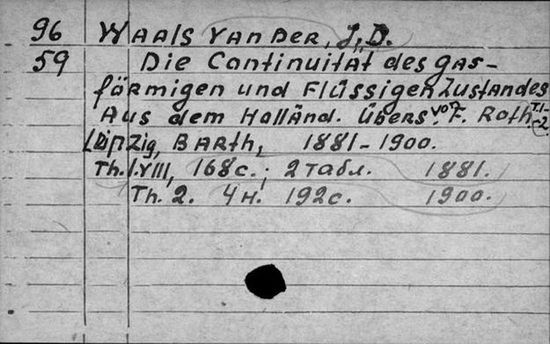 96 Waals Van Der, J. D.
59 Die Continuität des gas-
förmigen und Flüssigen Zustandes
Aus dem Holländ. Übers. von F. Roth. T.1-2.
Leipzig, Barth, 1881-1900.
Th. I. VIII, 168 с.; 2 табл. 1881.
Th. 2. 4 н. 192 с. 1900.